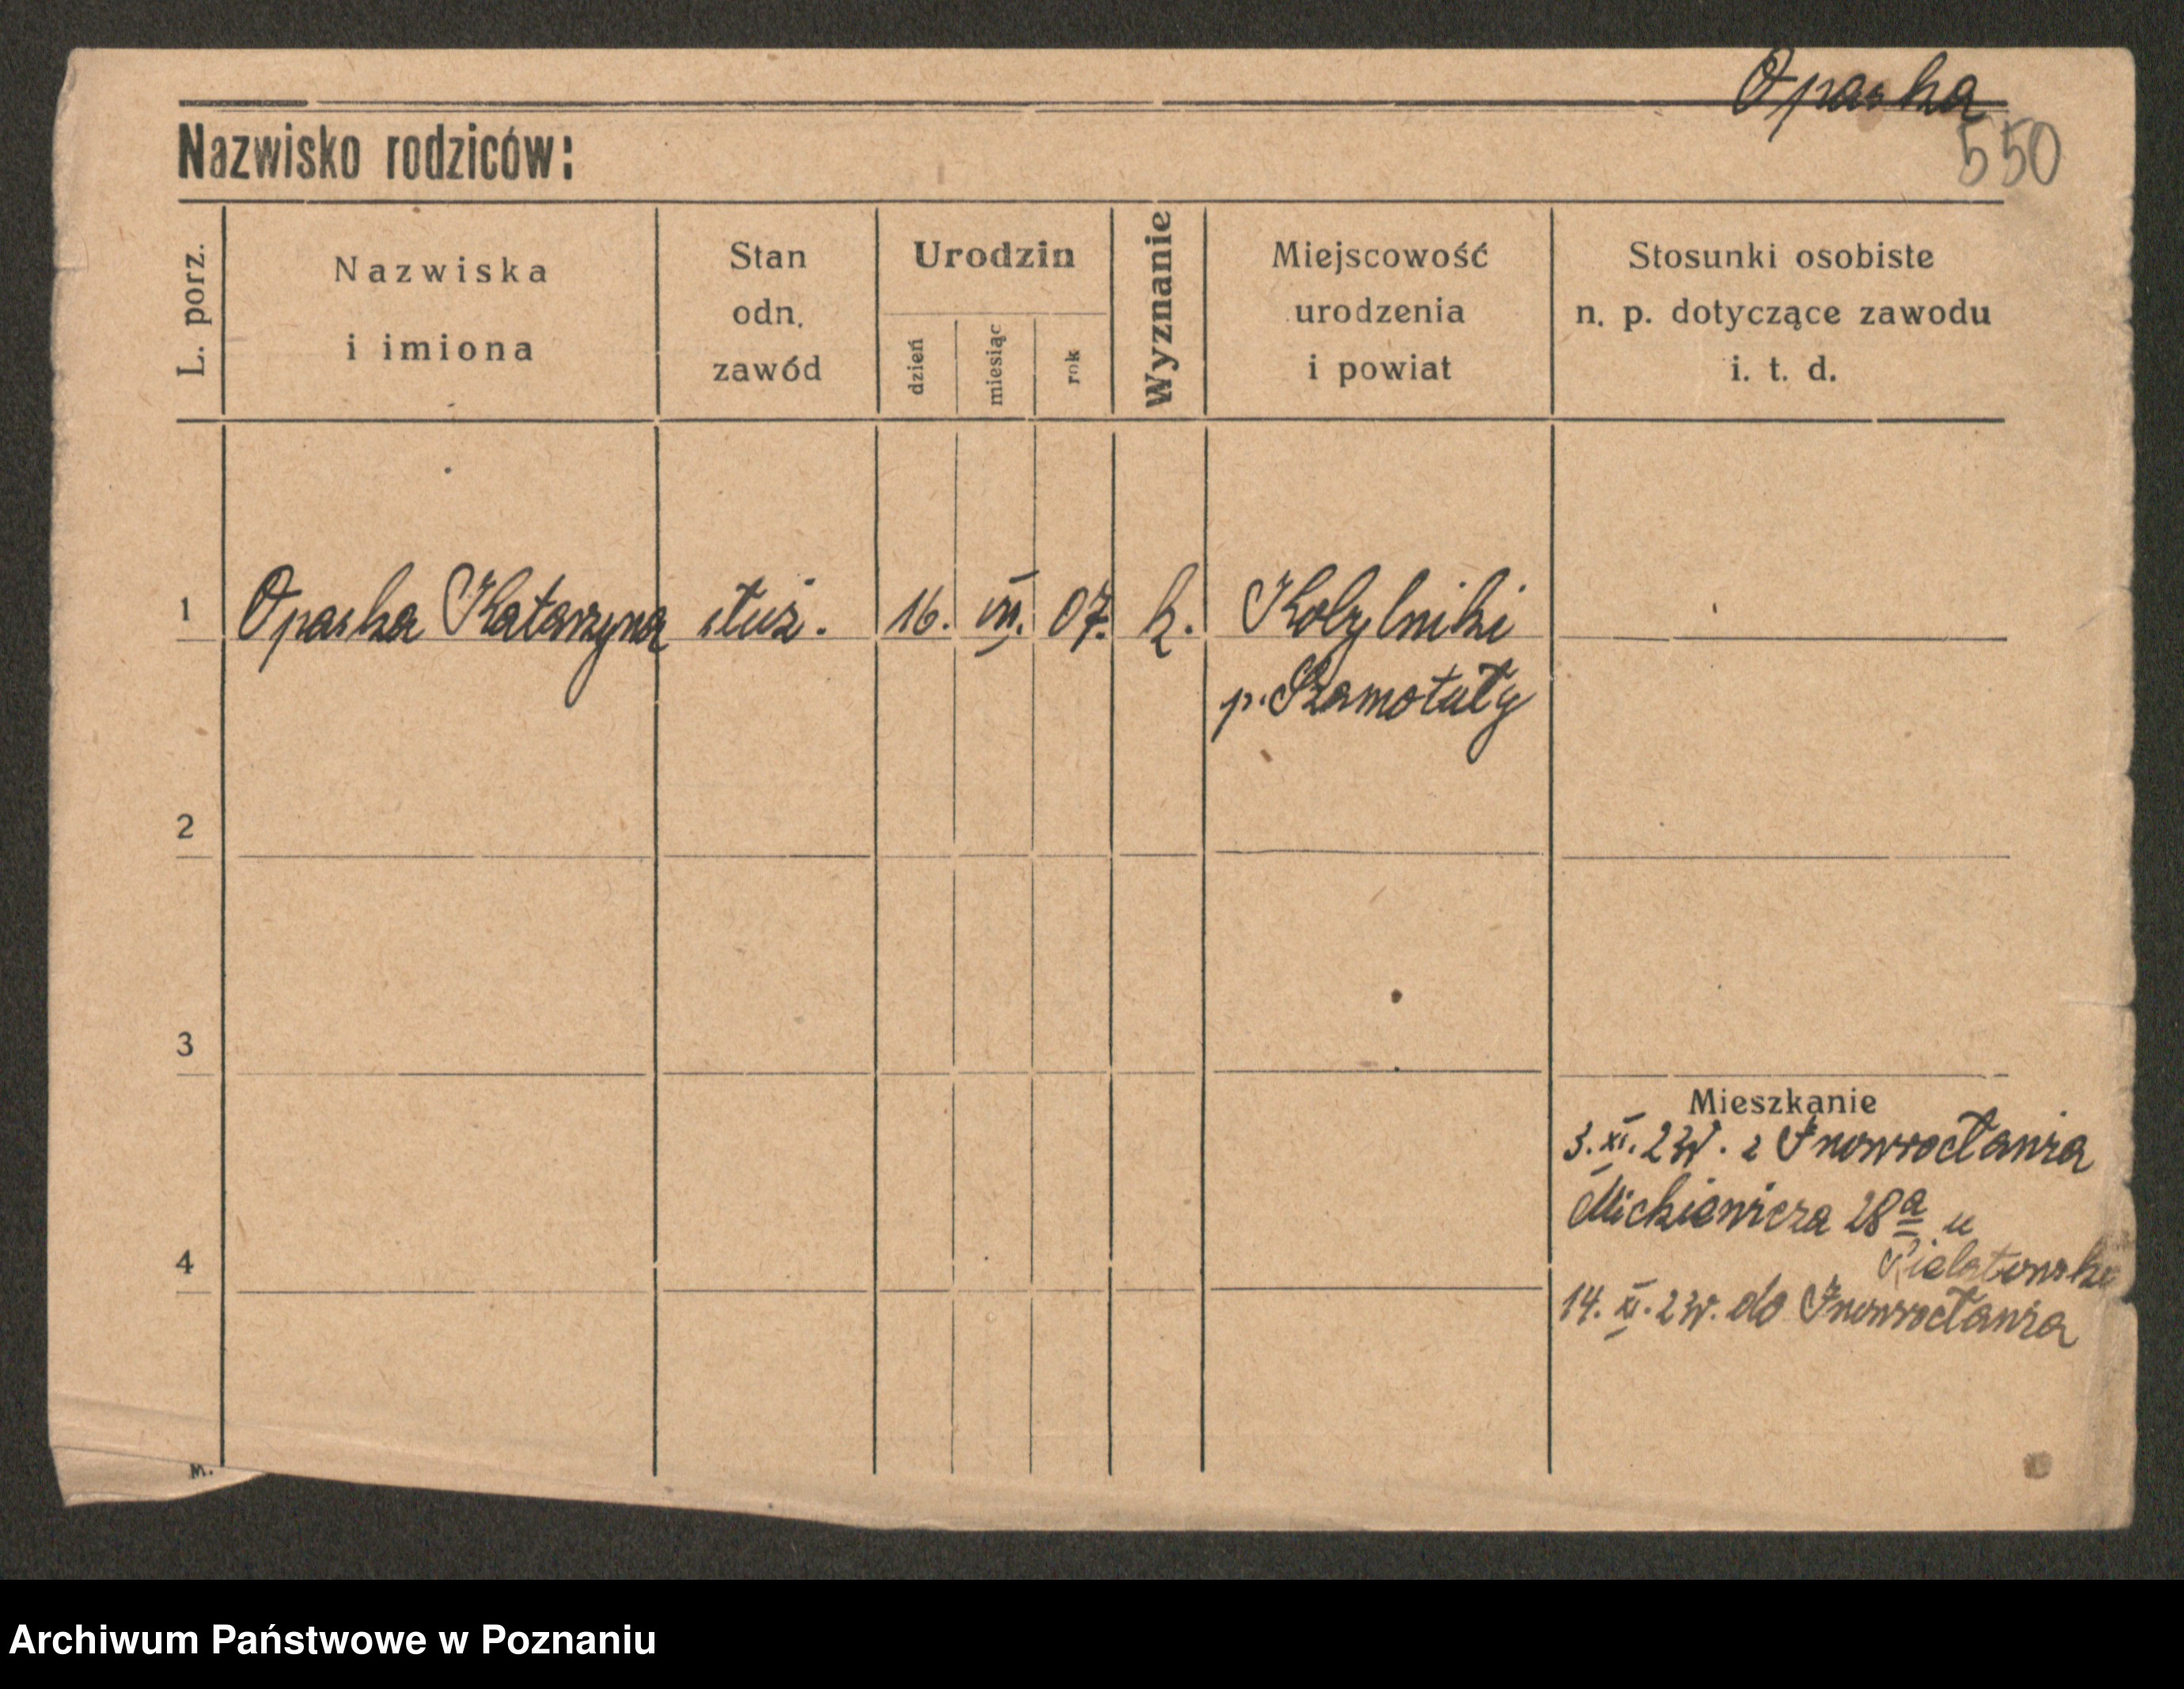 Opaska
550
Nazwisko rodziców:
L. porz.
Nazwiska
i imiona
Stan
odn.
zawód
Urodzin
dzień
miesiąc
rok
Wyznanie
Miejscowość
urodzenia
i powiat
Stosunki osobiste
n. p. dotyczące zawodu
i. t. d.
1 Opaska Katarzyna służ. 16. VII. 07. k. Kobylniki
p. Szamotuły
2
3
Mieszkanie
3. XI. 2 z Inowrocławia
Mickiewicza 28a u
4
14. XI. 2 do Inowrocławia
M.
Archiwum Państwowe w Poznaniu